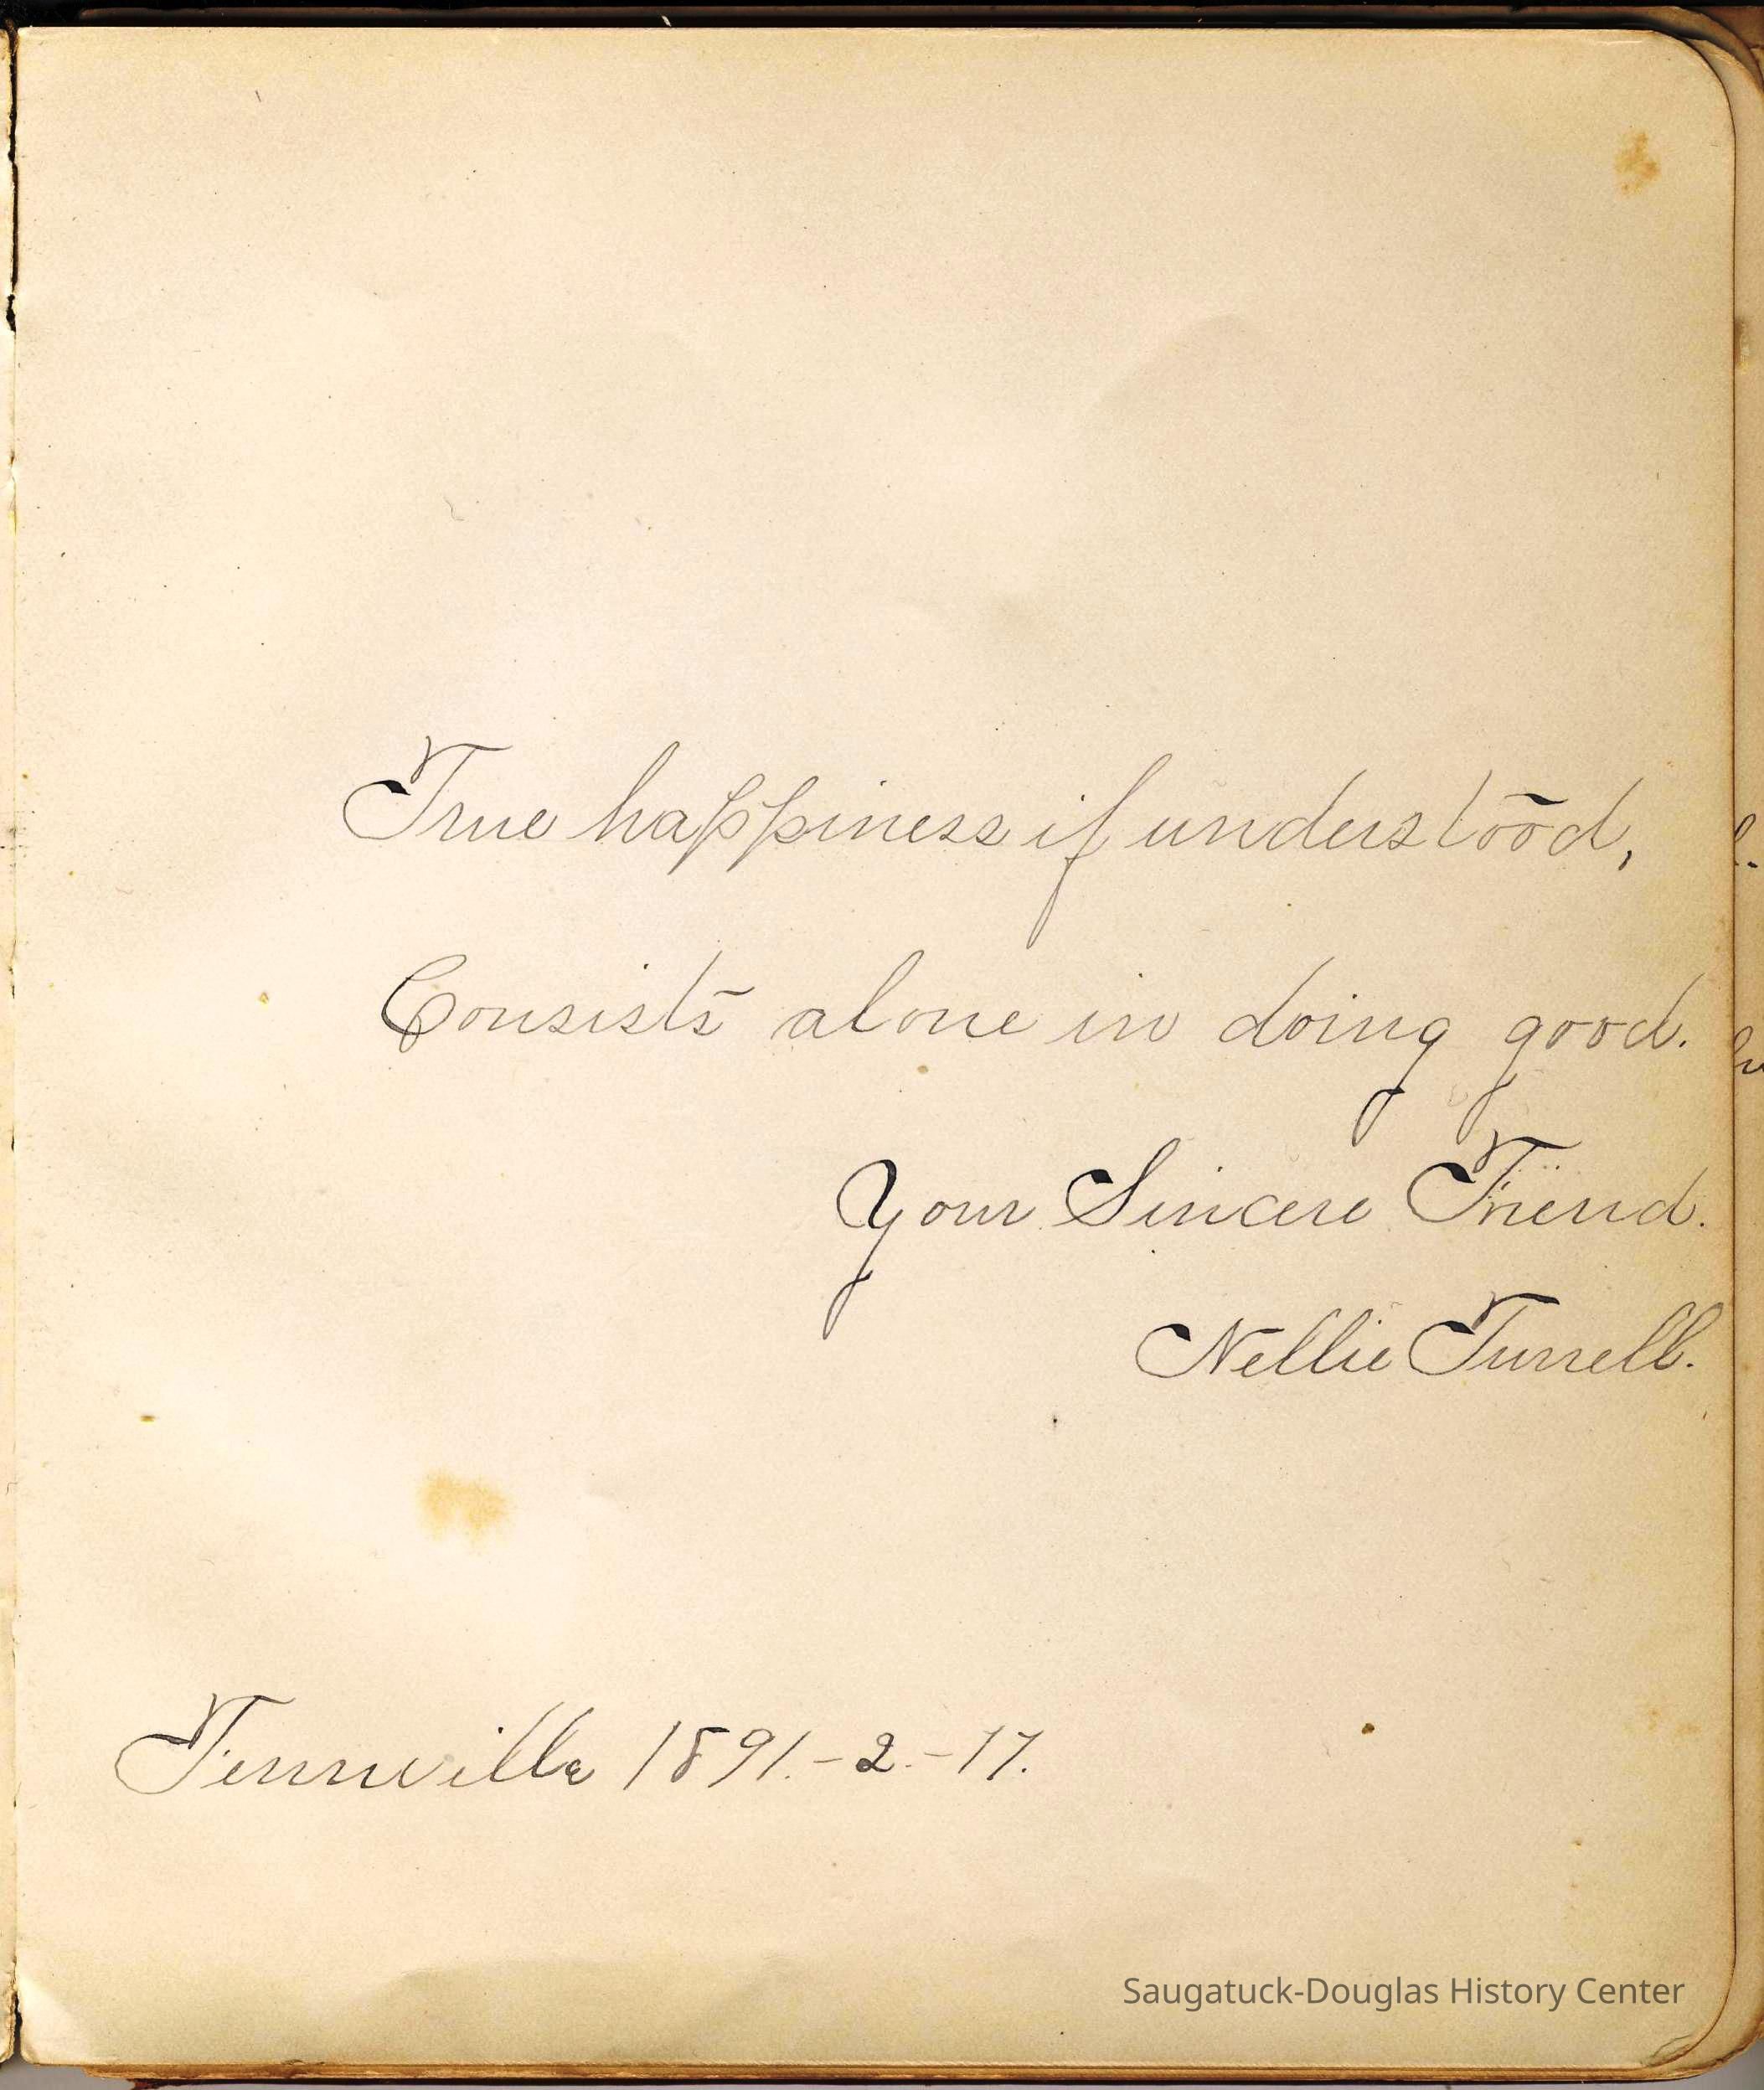 True happiness if understood,
Consists alone in doing good.
Your Sincere Friend.
Nellie Turrell.
Fennville 1891.-2.-17.
Saugatuck-Douglas History Center